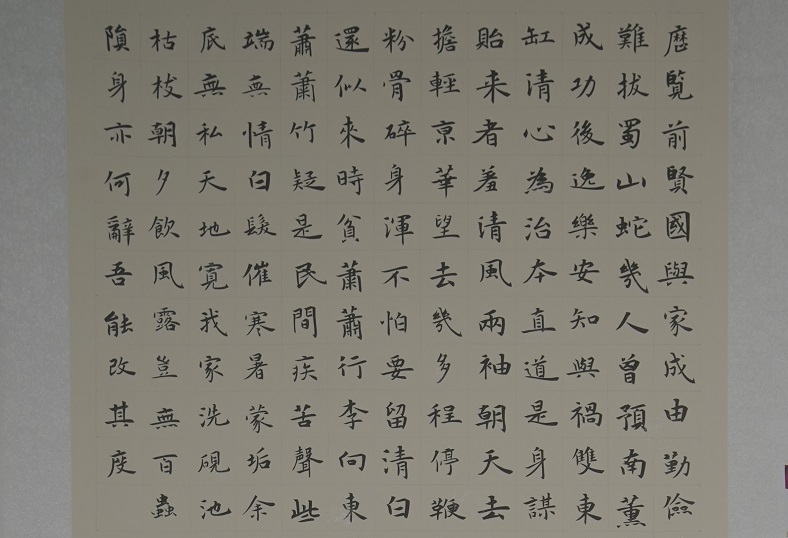 歷覽前賢國與家成由勤儉
難拔蜀山蛇幾人曾預南薰
成功後逸樂安知與禍雙東
缸清心為治本直道是身謀
貽来者羞清風兩袖朝天去
擔輕亰華望去幾多程停鞭
粉骨碎身渾不怕要留清白
還似來時貧蕭蕭行李向東
蕭蕭竹疑是民間疾苦聲些
端無情白髮催寒暑蒙垢余
底無私天地寬我家洗硯池
枯枝朝夕飲風露豈無百蟲
隕身亦何辭吾能改其度